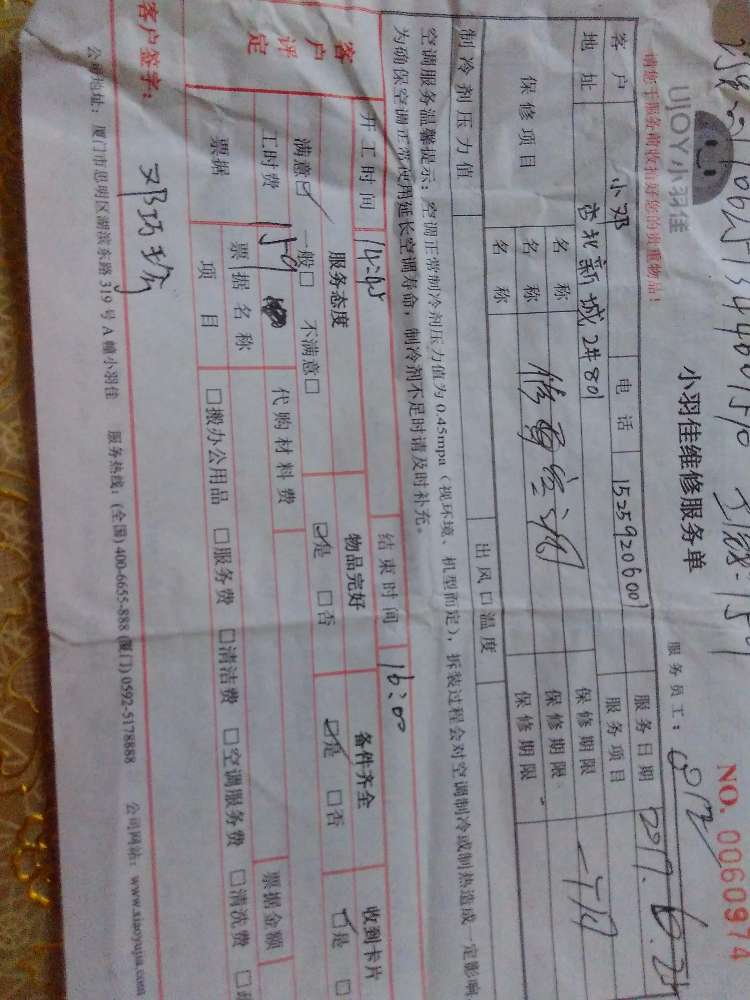 UJOY小羽佳
小羽佳维修服务单
NO. 0060974
请您于服务前收拾好您的贵重物品!
服务员工:
客户 小邓 电话 15259206001 服务日期 2017.6.
地址 杏北新城2#801 服务项目
保修项目 名称 保修期限
名称 修

空调 保修期限 一个月
名称 保修期限
制冷剂压力值 出风口温度
空调服务温馨提示:空调正常制冷剂压力值为0.45mpa(视环境、机型而定),拆装过程会对空调制冷或制热造成一定影响
为确保空调正常使用延长空调寿命,制冷剂不足时请及时补充。
开工时间 14:45 结束时间 16:00
客户评定 服务态度 物品完好 备件齐全 收到卡片
满意☑ 一般□ 不满意□ ☑是 □否 ☑是 □否 ☑是 □
工时费 159 代购材料费
票据 票据名称 票据金额
项目 □搬办公用品 □服务费 □清洁费 □空调服务费 □清洗费
客户签字: 邓巧珍
公司地址:厦门市思明区湖滨东路319号A幢小羽佳 服务热线:(全国)400-6655-888(厦门)0592-5178888 公司网站:www.xiaoyujia.com